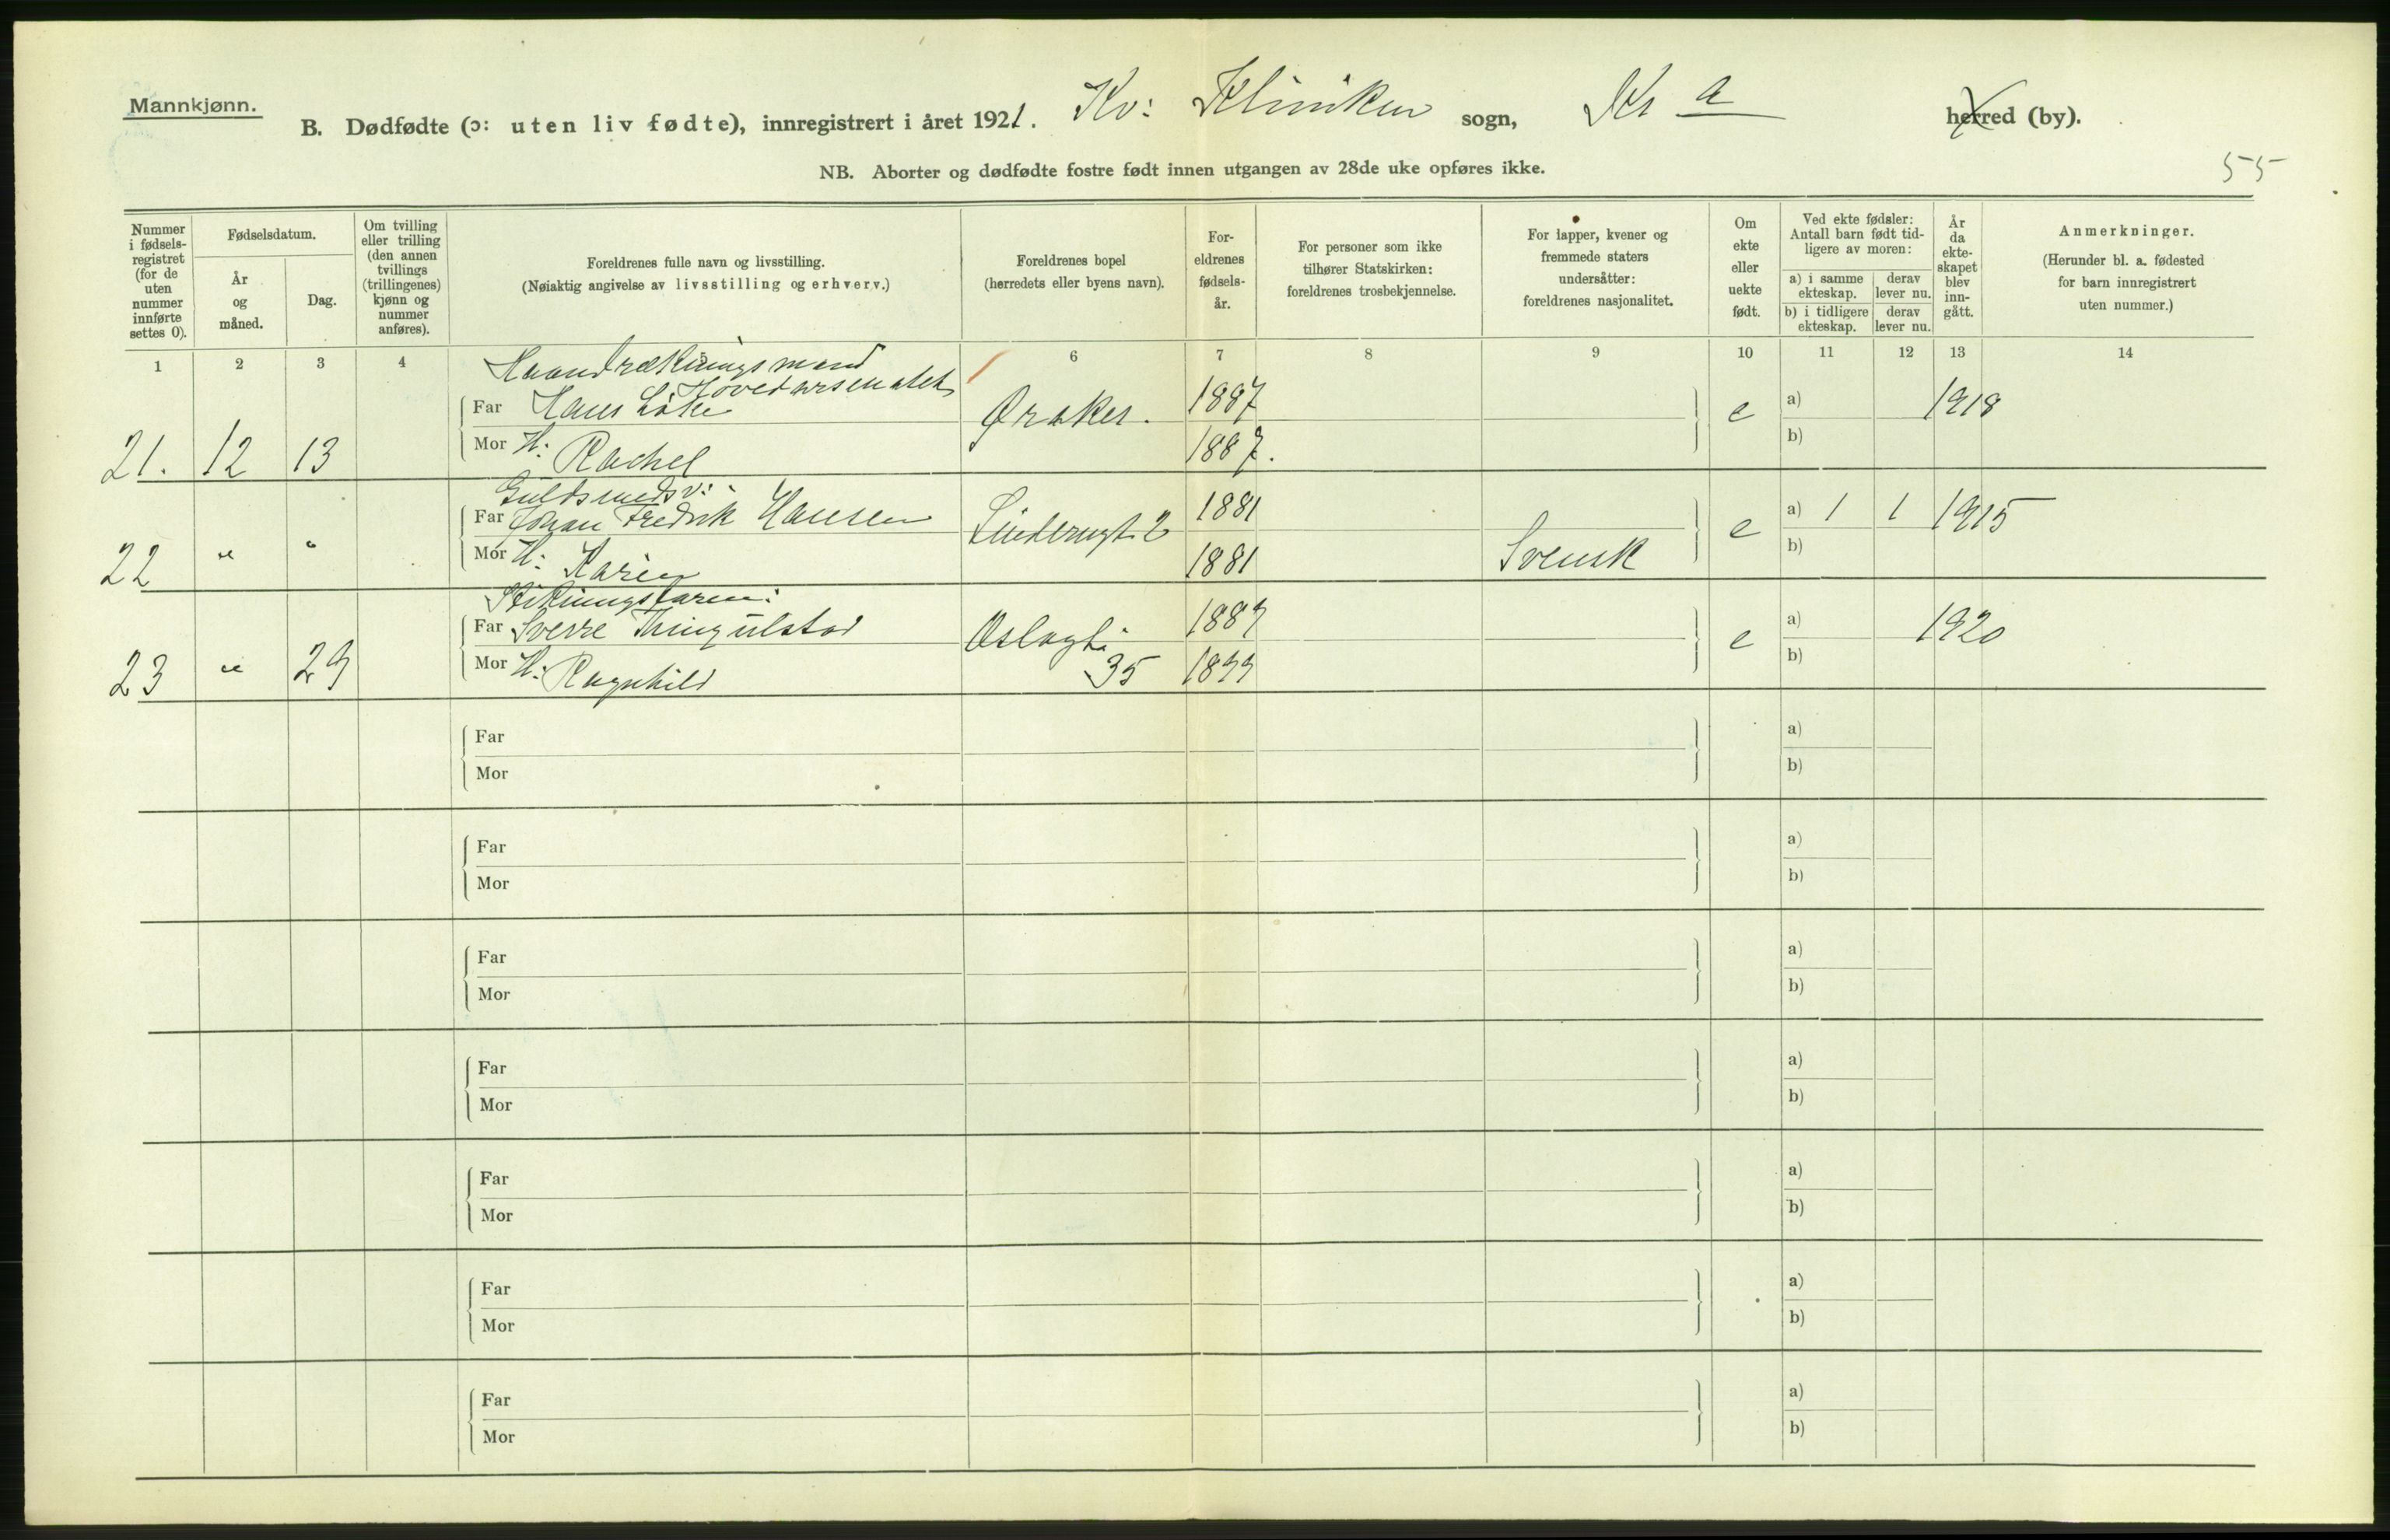 Mannkjønn.
B. Dødfødte (ɔ: uten liv fødte), innregistrert i året 1921. Kv: Kliniken sogn, Kr a herred (by).
NB. Aborter og dødfødte fostre født innen utgangen av 28de uke opføres ikke.
55
Nummer i fødsels-registret (for de uten nummer innførte settes 0).
Fødselsdatum.
År og måned.
Dag.
Om tvilling eller trilling (den annen tvillings (trillingenes) kjønn og nummer anføres).
Foreldrenes fulle navn og livsstilling.
(Nøiaktig angivelse av livsstilling og erhverv.)
Foreldrenes bopel
(herredets eller byens navn).
For-eldrenes fødsels-år.
For personer som ikke tilhører Statskirken: foreldrenes trosbekjennelse.
For lapper, kvener og fremmede staters undersåtter: foreldrenes nasjonalitet.
Om ekte eller uekte født.
Ved ekte fødsler: Antall barn født tid-ligere av moren:
a) i samme ekteskap.
derav lever nu.
b) i tidligere ekteskap.
derav lever nu.
År da ekte-skapet blev inn-gått.
Anmerkninger.
(Herunder bl. a. fødested for barn innregistrert uten nummer.)
1 2 3 4 6 7 8 9 10 11 12 13 14
Haandrækningsmand
Hovedarsenalet
Far Hans Løke Øraker. 1887 e a) 1918
21. 12 13 Mor H: Rachel 1887. b)
Guldsmedsv:
Far Johan Fredrik Hansen Linderngt. 2 1881 e a) 1 1 1915
22 " " Mor H: Karin 1881 Svensk b)
Far Sverre Thingulstad Oslogt. 1889 e a) 1920
23 " 29 Mor H: Ragnhild 35 1899 b)
Far a)
Mor b)
Far a)
Mor b)
Far a)
Mor b)
Far a)
Mor b)
Far a)
Mor b)
Far a)
Mor b)
Far a)
Mor b)